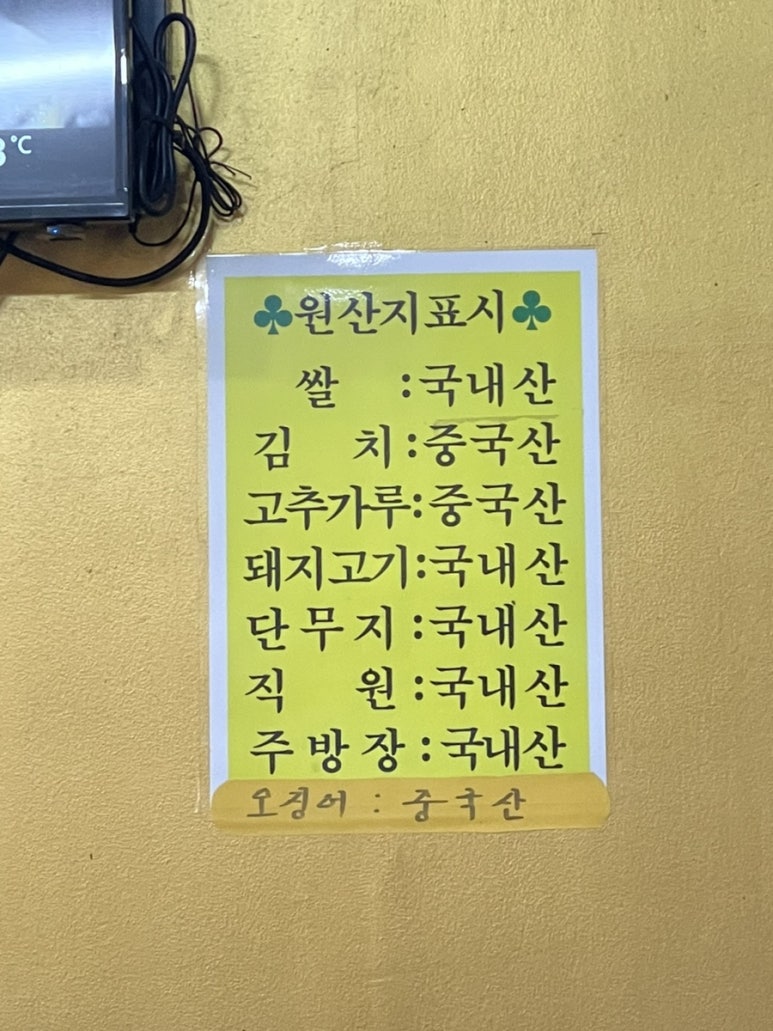 °C
♣원산지표시♣
쌀 :국내산
김 치:중국산
고추가루:중국산
돼지고기:국내산
단무지:국내산
직 원:국내산
주방장:국내산
오징어 : 중국산